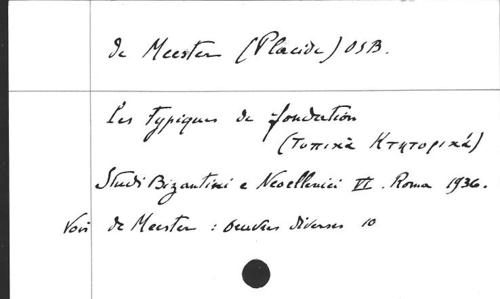 de Meester (Placide) OSB.
Les typiques de fondation
(Τυπικὰ Κτητορικά)
Studi Bizantini e Neoellenici VI. Roma 1936.
Voir de Meester : oeuvres diverses 10